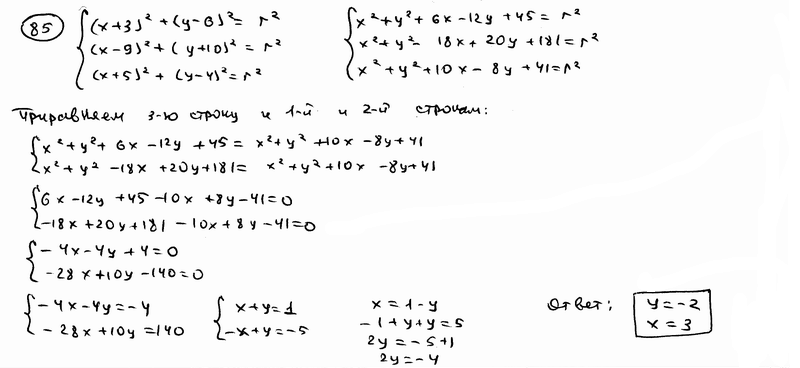 85
(x+3)² + (y-6)² = r²
(x-9)² + (y+10)² = r²
(x+5)² + (y-4)² = r²
x²+y²+6x-12y+45 = r²
x²+y²-18x+20y+181 = r²
x²+y²+10x-8y+41 = r²
Приравняем 3-ю строку к 1-й и 2-й строкам:
x²+y²+6x-12y+45 = x²+y²+10x-8y+41
x²+y²-18x+20y+181 = x²+y²+10x-8y+41
6x-12y+45-10x+8y-41=0
-18x+20y+181-10x+8y-41=0
-4x-4y+4=0
-28x+10y-140=0
-4x-4y=-4
-28x+10y=140
x+y=1
-x+y=-5
x=1-y
-1+y+y=5
2y=-5+1
2y=-4
Ответ:
y=-2
x=3